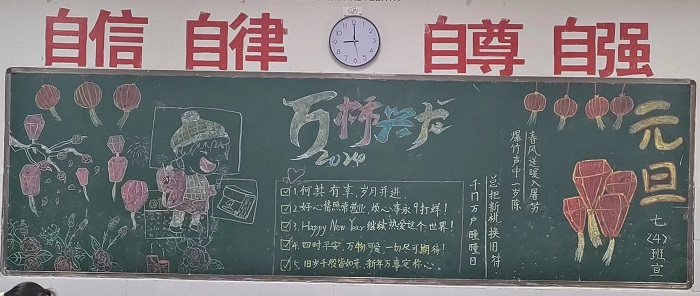 自信 自律 自尊 自强
万柿兴龙
2024
☑1.何其有幸,岁月并进
☑2.好心情照常营业 烦心事永久打烊!
☑3.Happy New Year 继续热爱这个世界!
☑4.四时平安,万物可爱 一切尽可期待!
☑5.旧岁千般皆如意,新年万事定称心。
爆竹声中一岁除
春风送暖入屠苏
千门万户曈曈日
总把新桃换旧符
元旦
七〈4〉班宣